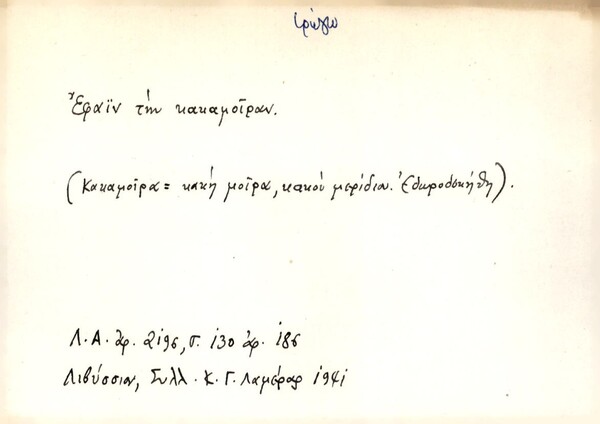 τρώγω
Ἔφαϊν τὴν κακαμοῖραν.
(Κακαμοῖρα = κακὴ μοῖρα, κακοὺ μερίδιον. Ἐδωροδοκήθη).
Λ.Α. ἀρ. 2195, σ. 130 ἀρ. 186
Λιβύσσιον, Συλλ. Κ. Γ. Λαμέρας 1941